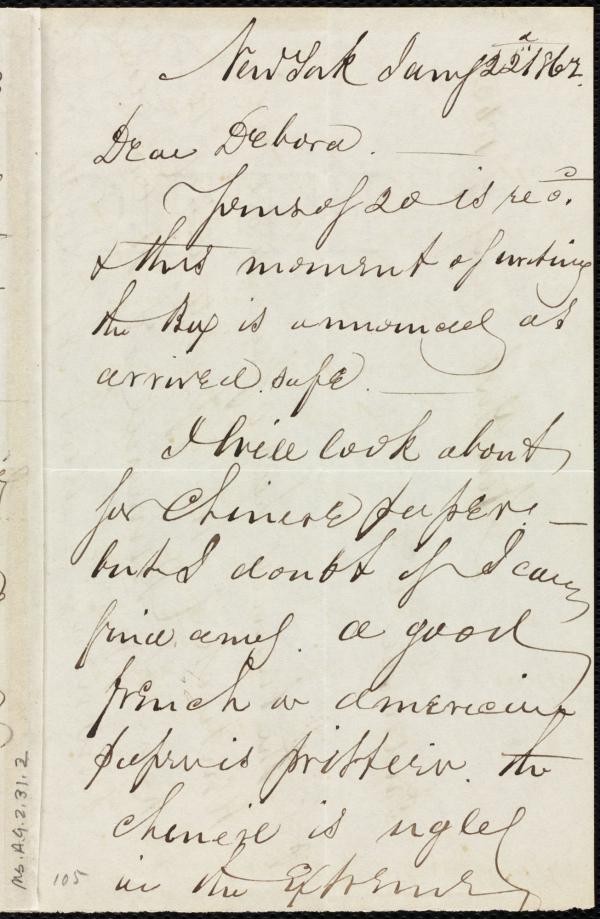 New York Jany 22d 1862.
Dear Debora. —
Yours of 20 is recd.
& this moment of writing
the Box is announced as
arrived safe. —
I will look about
for Chinese paper. —
but I doubt if I can
find any. a good
french or american
paper is prettier. the
chinese is ugly
in the Extreme
Ms.A.9.2.31.2
105